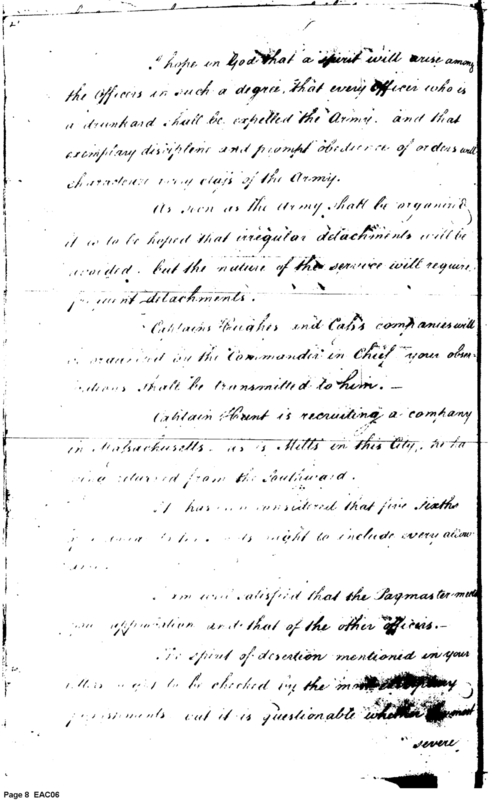 I hope in God that a spirit will arise among
the Officers in such a degree, that every officer who is
a drunkard shall be expelled the Army. and that
exemplary discipline and prompt obedience of orders will
characterize every class of the Army.
As soon as the Army shall be organized
it is to be hoped that irregular detachments will be
avoided. but the nature of the service will require
frequent detachments.
Captains Hughes and Cass's companies will
be organized by the Commander in Chief your obser-
vations shall be transmitted to him. —
Captain Hunt is recruiting a company
in Massachusetts. as is Mills in this City, he ha
ving returned from the Southward.
It has been considered that five sixths
ought to include every allow
ance.
I am well satisfied that the Paymaster meets
your approbation and that of the other officers. —
The spirit of desertion mentioned in your
letters ought to be checked by the most exemplary
punishments but it is questionable whether the most
severe
Page 8 EAC06